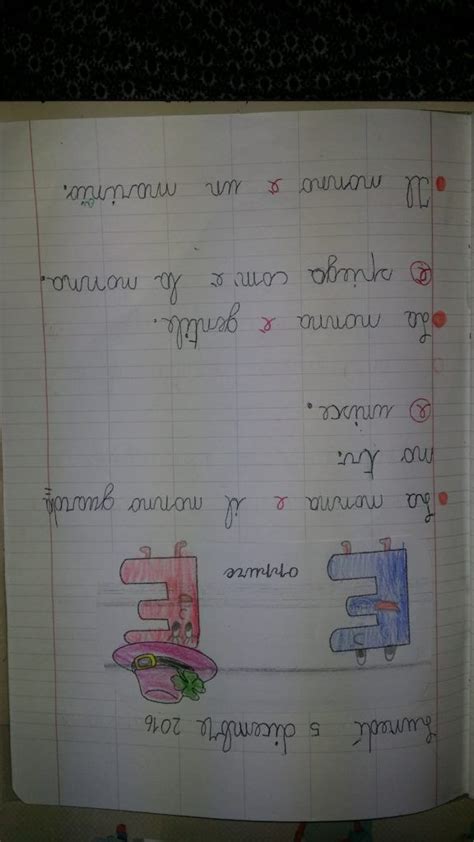 Lunedì 5 dicembre 2016
E oppure E
La nonna e il nonno guarda
no tv.
e unisce.
La nonna è gentile.
è spiega com'è la nonna.
Il nonno è un marinaio.